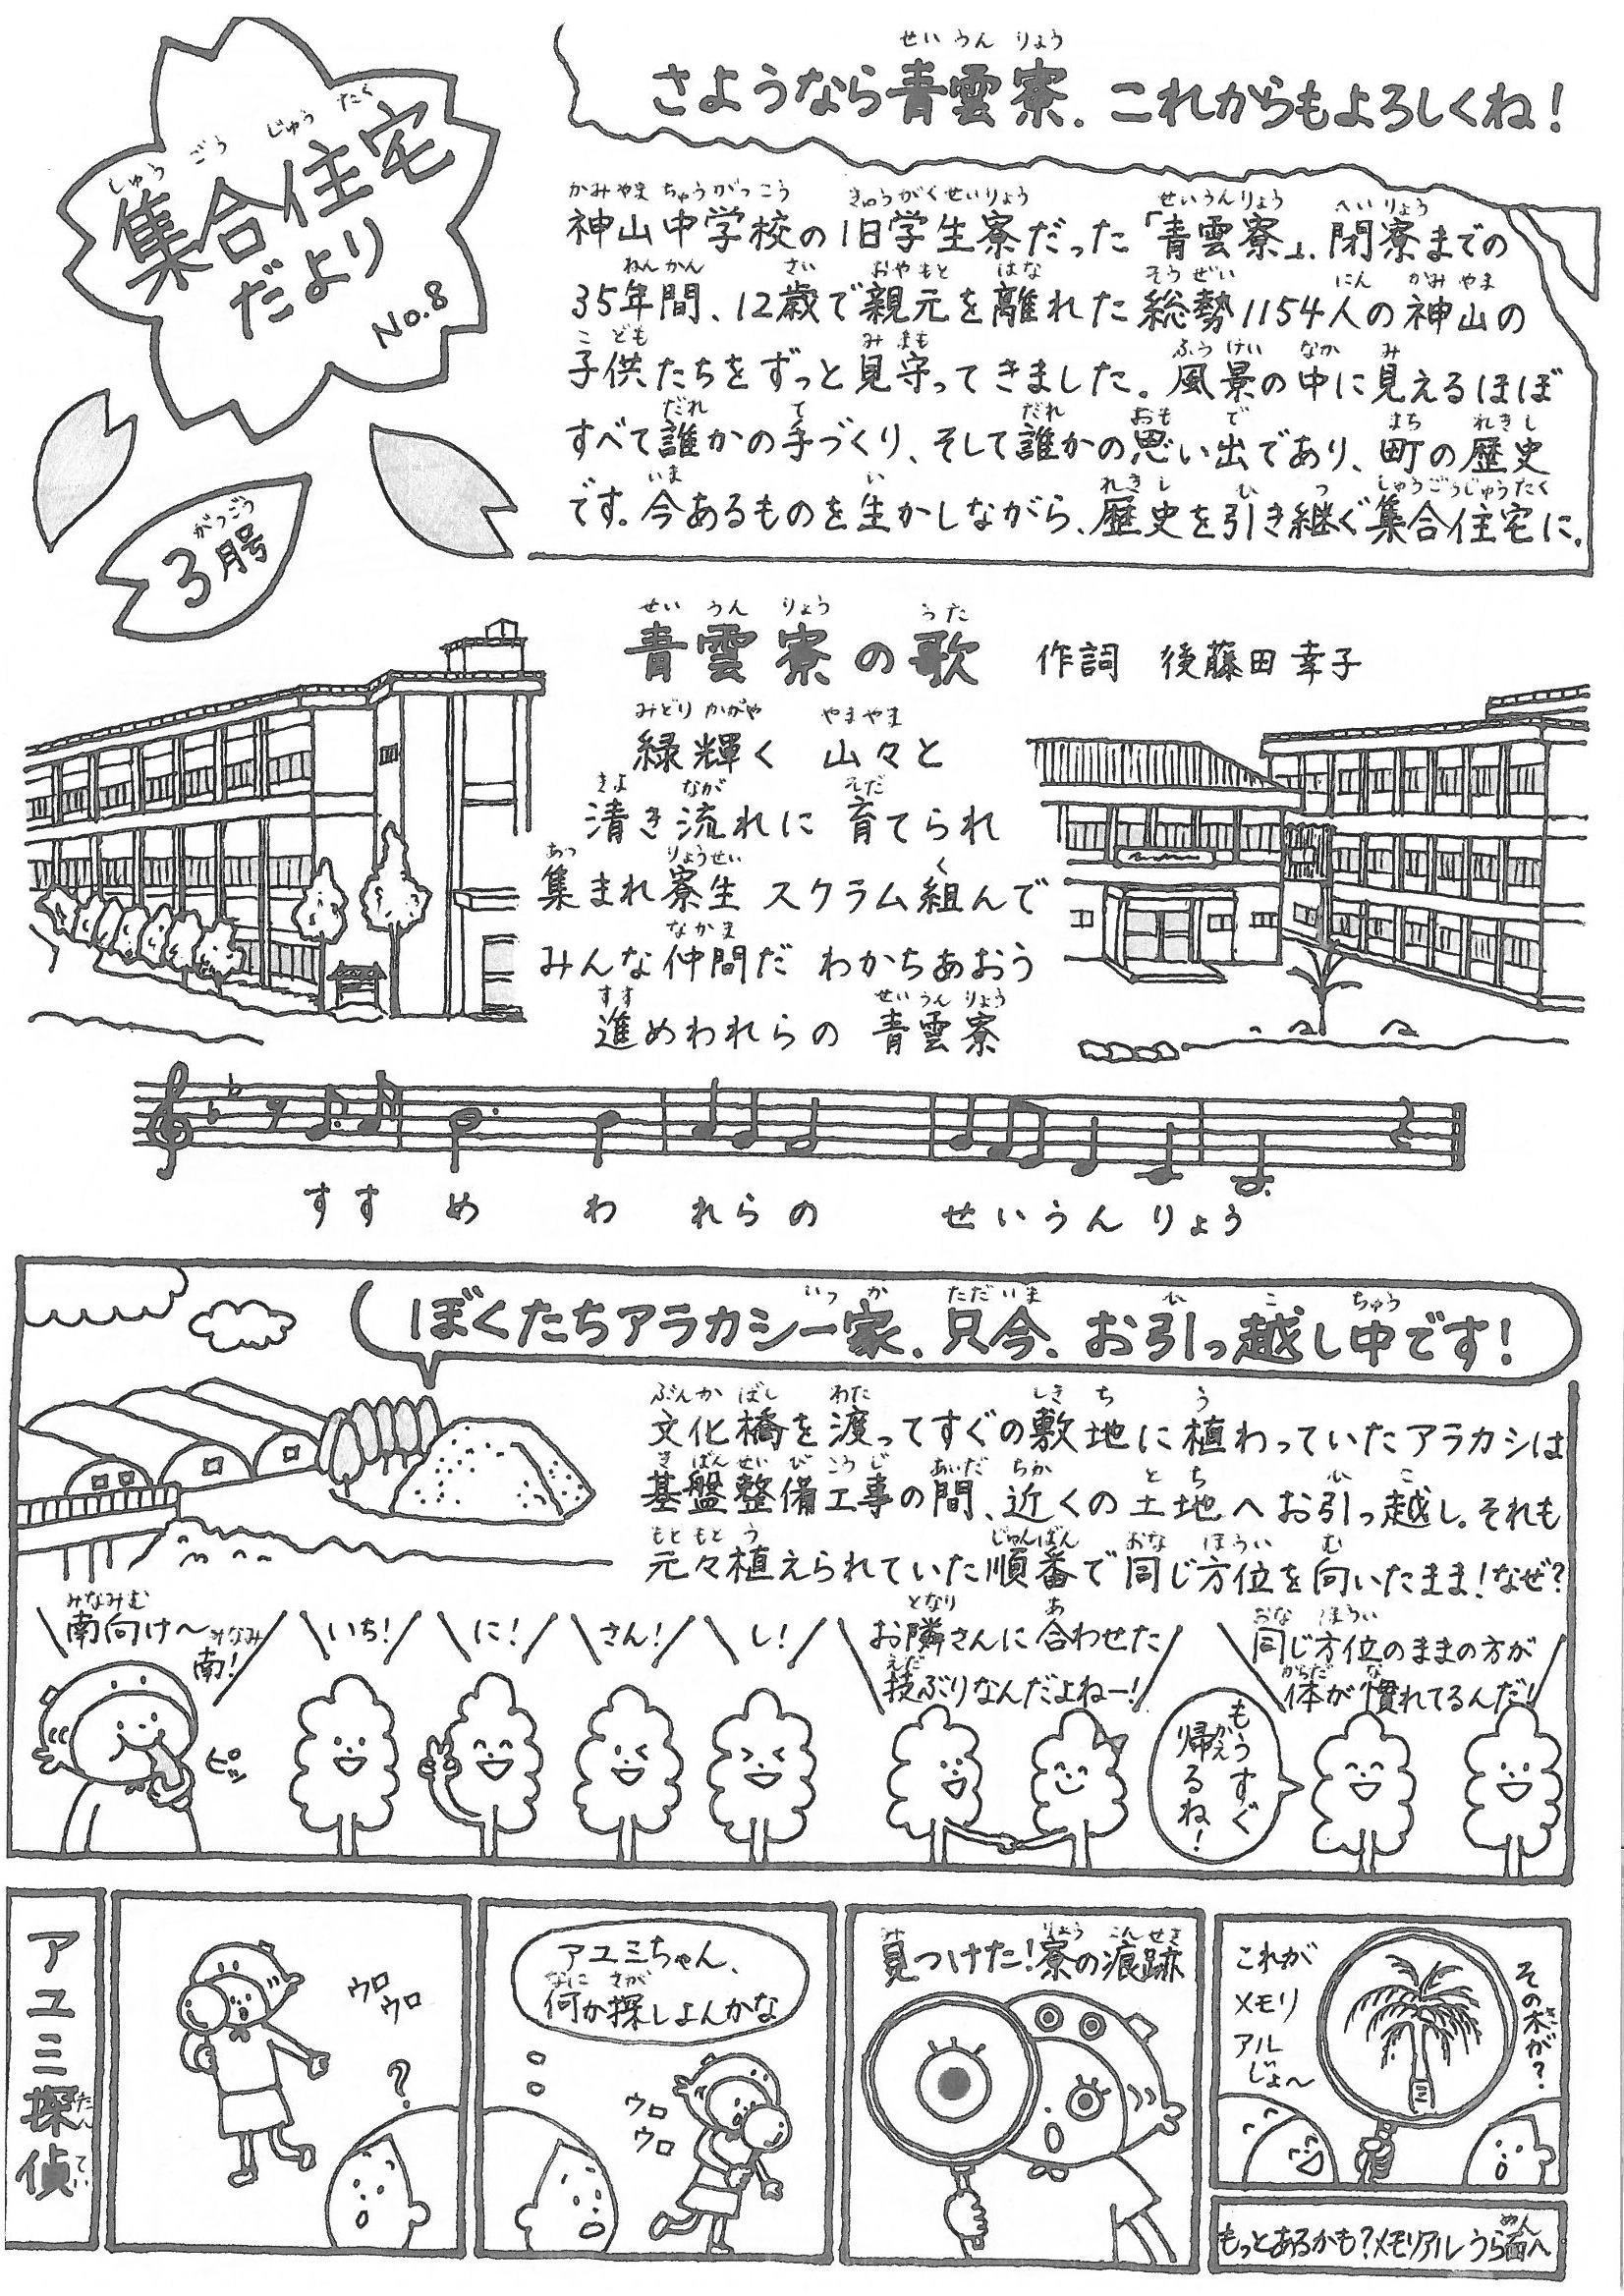 集合住宅
だより
No.8
3月号
さようなら青雲寮、これからもよろしくね！
神山中学校の旧学生寮だった「青雲寮」、閉寮までの
35年間、12歳で親元を離れた総勢1154人の神山の
子供たちをずっと見守ってきました。風景の中に見えるほぼ
すべて誰かの手づくり、そして誰かの思い出であり、町の歴史
です。今あるものを生かしながら、歴史を引き継ぐ集合住宅に。
青雲寮の歌 作詞 後藤田幸子
緑輝く 山々と
清き流れに 育てられ
集まれ寮生 スクラム組んで
みんな仲間だ わかちあおう
進めわれらの 青雲寮
すすめわれらの せいうんりょう
ぼくたちアラカシ一家、只今、お引っ越し中です！
文化橋を渡ってすぐの敷地に植わっていたアラカシは
基盤整備工事の間、近くの土地へお引っ越し。それも
元々植えられていた順番で同じ方位を向いたまま！なぜ？
南向け〜南！
ピッ
いち！
に！
さん！
し！
お隣さんに合わせた
枝ぶりなんだよねー！
同じ方位のままの方が
体が慣れてるんだ！
もうすぐ
帰るね！
アユミ探偵
ウロ
ウロ
？
アユミちゃん、
何か探しよんかな
ウロ
ウロ
見つけた！寮の痕跡
その木が？
これが
メモリ
アル
じょ〜
もっとあるかも？メモリアルうら面へ